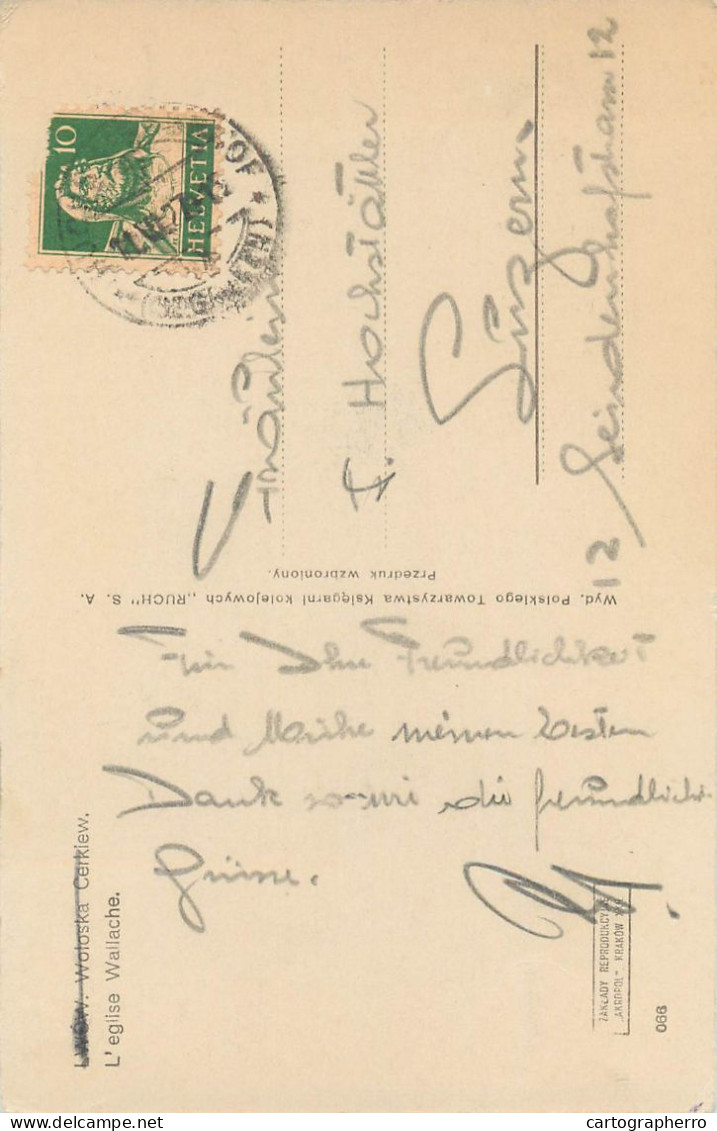 LWÓW. Wołoska Cerkiew.
L' eglise Wallache.
Für Ihre Freundlichkeit
und Mühe meinen besten
Dank sowie die freundlich.
Grüsse.
Wyd. Polskiego Towarzystwa Księgarni kolejowych ,,RUCH" S. A.
Przedruk wzbroniony.
10
HELVETIA
Fräulein
F. Hochstätter
Luzern.
12
12
ZAKŁADY REPRODUKCYJNE
„AKROPOL" KRAKÓW
066
cartographerro
delcampe.net